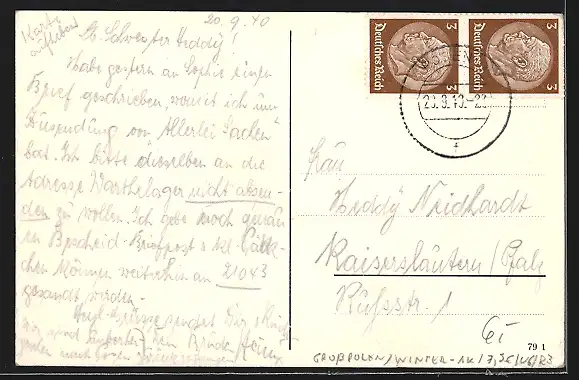 Karte
aufheben
20.9.40
Lb. Schwester Heddy!
Habe gestern an Sophie einen
Brief geschrieben, womit ich um
Zusendung von "Allerlei Sachen"
bat. Ich bitte dieselben an die
Adresse Warthelager nicht absen-
den zu wollen. Ich gebe noch genau-
en Bescheid. Briefpost u. kl. Päck-
chen können weiterhin an 21043
gesandt werden.
Herzl. Grüsse sendet Dir
Dein Bruder Heinz
Deutsches Reich 3
Deutsches Reich 3
POSEN
20.9.40.-20
f
Frau
Heddy Neidhardt
Kaiserslautern/Pfalz
Russstr. 1
79 1
GROßPOLEN/WINTER